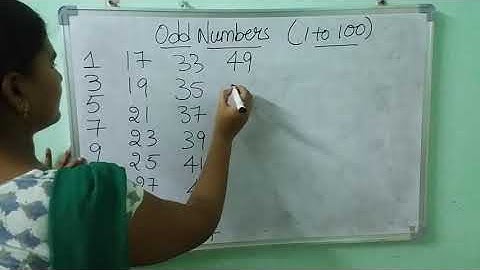 Odd Numbers (1 to 100)
1 17 33 49
3 19 35
5 21 37
7 23 39
9 25 41
27